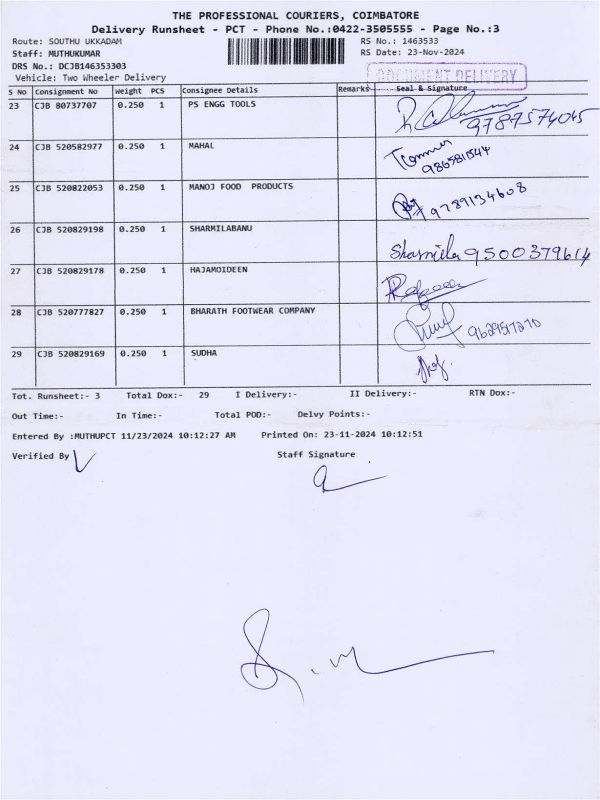 THE PROFESSIONAL COURIERS, COIMBATORE
Delivery Runsheet - PCT - Phone No.:0422-3505555 - Page No.:3
Route: SOUTHU UKKADAM RS No.: 1463533
Staff: MUTHUKUMAR RS Date: 23-Nov-2024
DRS No.: DCJB146353303
Vehicle: Two Wheeler Delivery DOCUMENT DELIVERY
S No Consignment No Weight PCS Consignee Details Remarks Seal & Signature
23 CJB 80737707 0.250 1 PS ENGG TOOLS
9787574045
24 CJB 520582977 0.250 1 MAHAL
986581544
25 CJB 520822053 0.250 1 MANOJ FOOD PRODUCTS 9789134608
26 CJB 520829198 0.250 1 SHARMILABANU
Sharmila 9500379614
27 CJB 520829178 0.250 1 HAJAMOIDEEN
28 CJB 520777827 0.250 1 BHARATH FOOTWEAR COMPANY
29 CJB 520829169 0.250 1 SUDHA
Tot. Runsheet:- 3 Total Dox:- 29 I Delivery:- II Delivery:- RTN Dox:-
Out Time:- In Time:- Total POD:- Delvy Points:-
Entered By :MUTHUPCT 11/23/2024 10:12:27 AM Printed On: 23-11-2024 10:12:51
Verified By Staff Signature